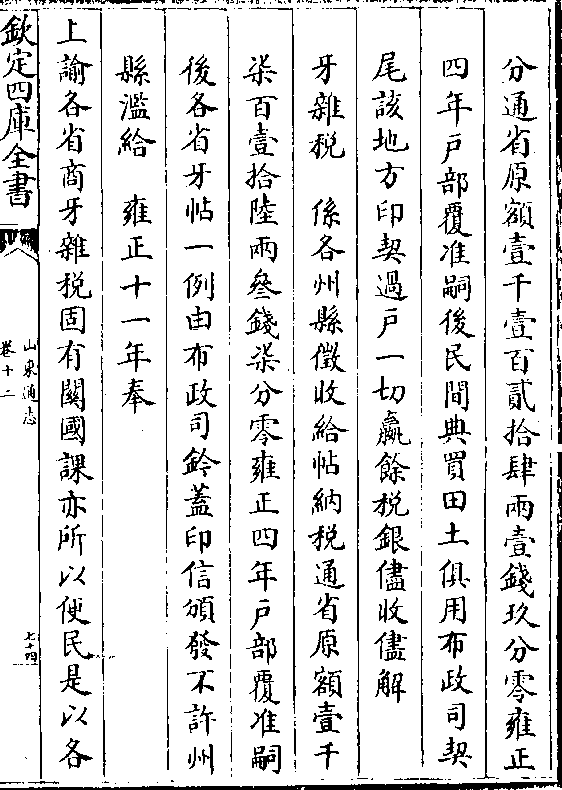 分通省原額壹千壹百貳拾肆兩壹錢玖分零雍正
四年戸部覆准嗣後民間典買田土俱用布政司契
尾該地方印契過戸一切贏餘税銀儘收儘解
牙雜税　係各州縣徵收給帖納税通省原額壹千
柒百壹拾陸兩叄錢柒分零雍正四年戸部覆准嗣
後各省牙帖一例由布政司鈐蓋印信頒發不許州
縣濫給　雍正十一年奉
上諭各省商牙雜税固有關國課亦所以便民是以各
欽定四庫全書
山東通志
卷十二
七十四